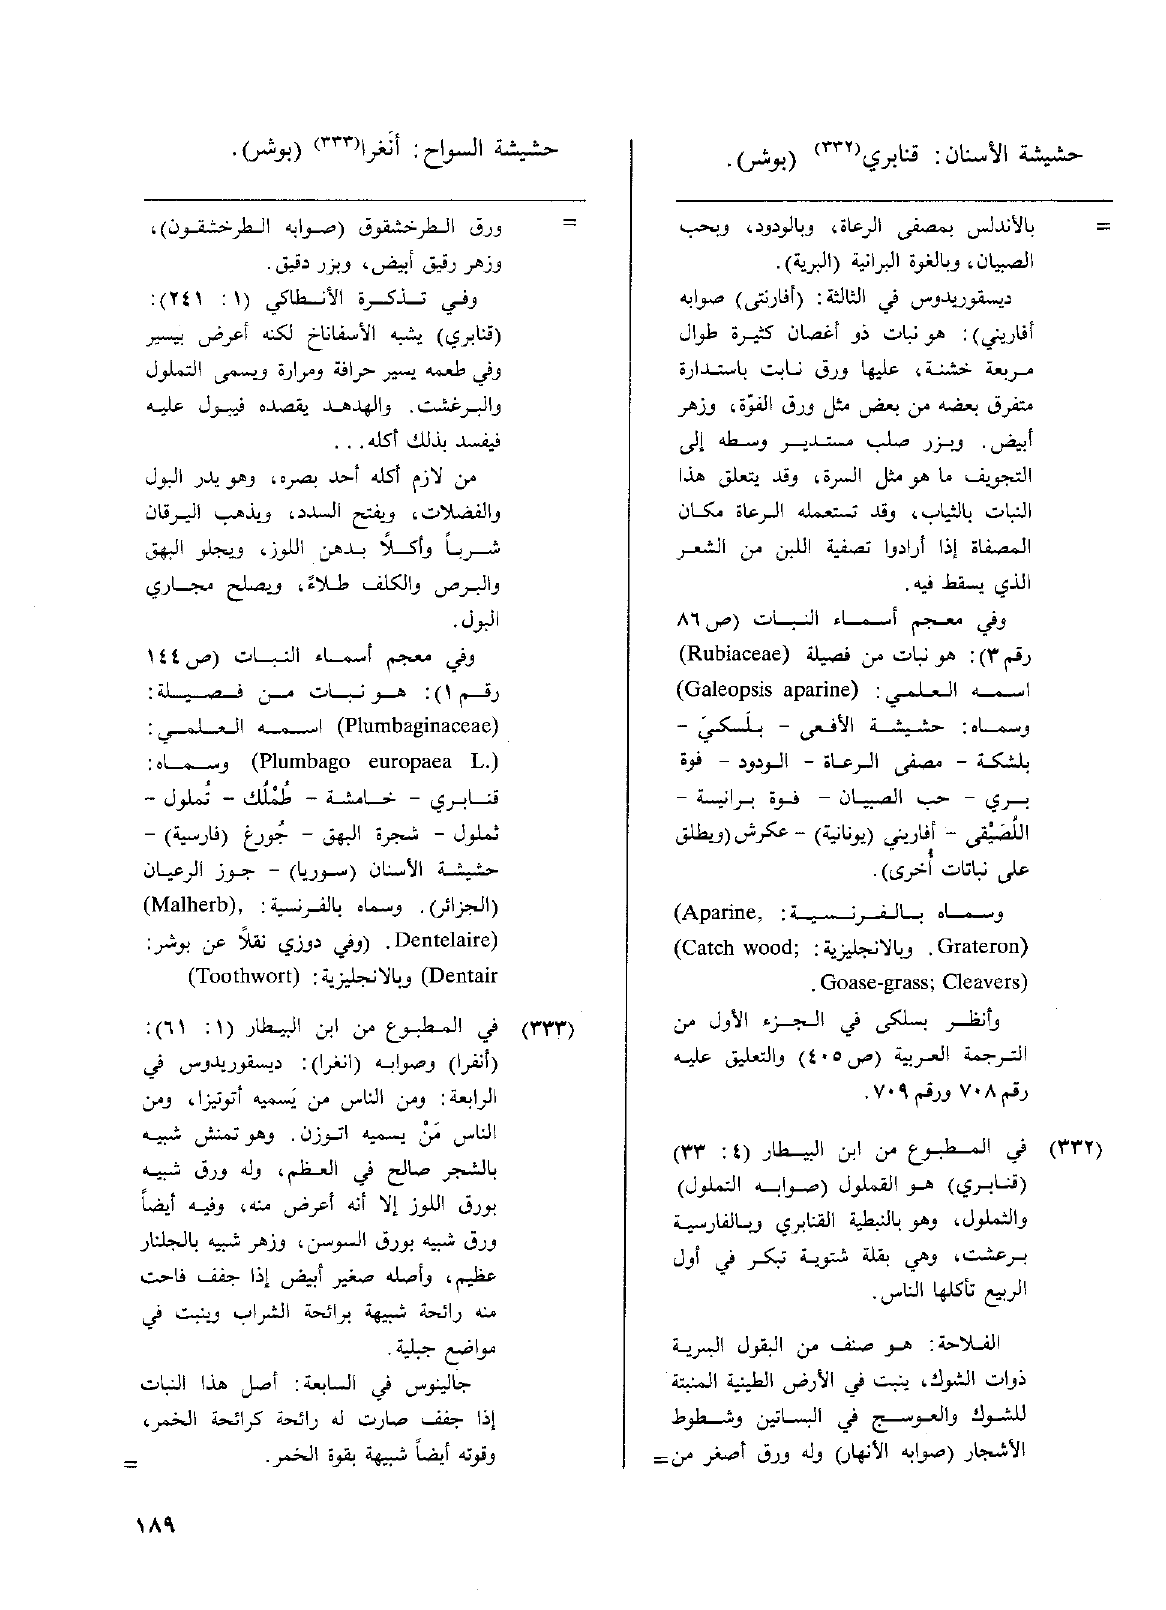 حشيشة الأسنان: قنابري(٣٣٢) (بوشر).
= بالأندلس بمصفى الرعاة، وبالودود، وبحب
الصبيان، وبالغوة البرانية (البرية).
ديسقوريدوس في الثالثة: (أفارنتى) صوابه
أفاريني): هو نبات ذو أغصان كثيرة طوال
مربعة خشنة، عليها ورق نابت باستدارة
متفرق بعضه من بعض مثل ورق الفوّة، وزهر
أبيض. وبزر صلب مستدير وسطه إلى
التجويف ما هو مثل السرة، وقد يتعلق هذا
النبات بالثياب، وقد تستعمله الرعاة مكان
المصفاة إذا أرادوا تصفية اللبن من الشعر
الذي يسقط فيه.
وفي معجم أسماء النبات (ص٨٦
رقم٣): هو نبات من فصيلة (Rubiaceae)
اسمه العلمي: (Galeopsis aparine)
وسماه: حشيشة الأفعى – بلَسكيَ –
بلشكة – مصفى الرعاة – الودود – فوة
بري – حب الصبيان – فوة برانية –
اللُصَيْقى – أفاريني (يونانية) – عكرش (ويطلق
على نباتات أُخرى).
وسماه بالفرنسية: (Aparine,
Grateron). وبالانجليزية: (Catch wood;
Goase-grass; Cleavers).
وأنظر بسلكى في الجزء الأول من
الترجمة العربية (ص٤٠٥) والتعليق عليه
رقم ٧٠٨ ورقم ٧٠٩.
(٣٣٢) في المطبوع من ابن البيطار (٤: ٣٣)
(قنابري) هو القملول (صوابه التملول)
والثملول، وهو بالنبطية القنابري وبالفارسية
برعشت، وهي بقلة شتوية تبكر في أول
الربيع تأكلها الناس.
الفلاحة: هو صنف من البقول البرية
ذوات الشوك، ينبت في الأرض الطينية المنبتة
للشوك والعوسج في البساتين وشطوط
الأشجار (صوابه الأنهار) وله ورق أصغر من =
حشيشة السواح: أنَغرا(٣٣٣) (بوشر).
= ورق الطرخشقوق (صوابه الطرخشقون)،
وزهر رقيق أبيض، وبزر دقيق.
وفي تذكرة الأنطاكي (١: ٢٤١):
(قنابري) يشبه الأسفاناخ لكنه أعرض بيسير
وفي طعمه يسير حرافة ومرارة ويسمى التملول
والبرغشت. والهدهد يقصده فيبول عليه
فيفسد بذلك أكله...
من لازم أكله أحد بصره، وهو يدر البول
والفضلات، ويفتح السدد، ويذهب اليرقان
شرباً وأكلاً بدهن اللوز، ويجلو البهق
والبرص والكلف طلاءً، ويصلح مجاري
البول.
وفي معجم أسماء النبات (ص١٤٤
رقم ١): هو نبات من فصيلة:
(Plumbaginaceae) اسمه العلمي:
(Plumbago europaea L.) وسماه:
قنابري – خامشة – طُمْلُك – تُملول –
ثملول – شجرة البهق – جُورغ (فارسية) –
حشيشة الأسنان (سوريا) – جوز الرعيان
(الجزائر). وسماه بالفرنسية: (Malherb,
Dentelaire). (وفي دوزي نقلاً عن بوشر:
Dentair) وبالانجليزية: (Toothwort)
(٣٣٣) في المطبوع من ابن البيطار (١: ٦١):
(أنفرا) وصوابه (انغرا): ديسقوريدوس في
الرابعة: ومن الناس من يَسميه أتوتيزا، ومن
الناس مَنْ يسميه اتوزن. وهو تمنش شبيه
بالشجر صالح في العظم، وله ورق شبيه
بورق اللوز إلا أنه أعرض منه، وفيه أيضاً
ورق شبيه بورق السوسن، وزهر شبيه بالجلنار
عظيم، وأصله صغير أبيض إذا جفف فاحت
منه رائحة شبيهة برائحة الشراب وينبت في
مواضع جبلية.
جالينوس في السابعة: أصل هذا النبات
إذا جفف صارت له رائحة كرائحة الخمر،
وقوته أيضاً شبيهة بقوة الخمر. =
١٨٩